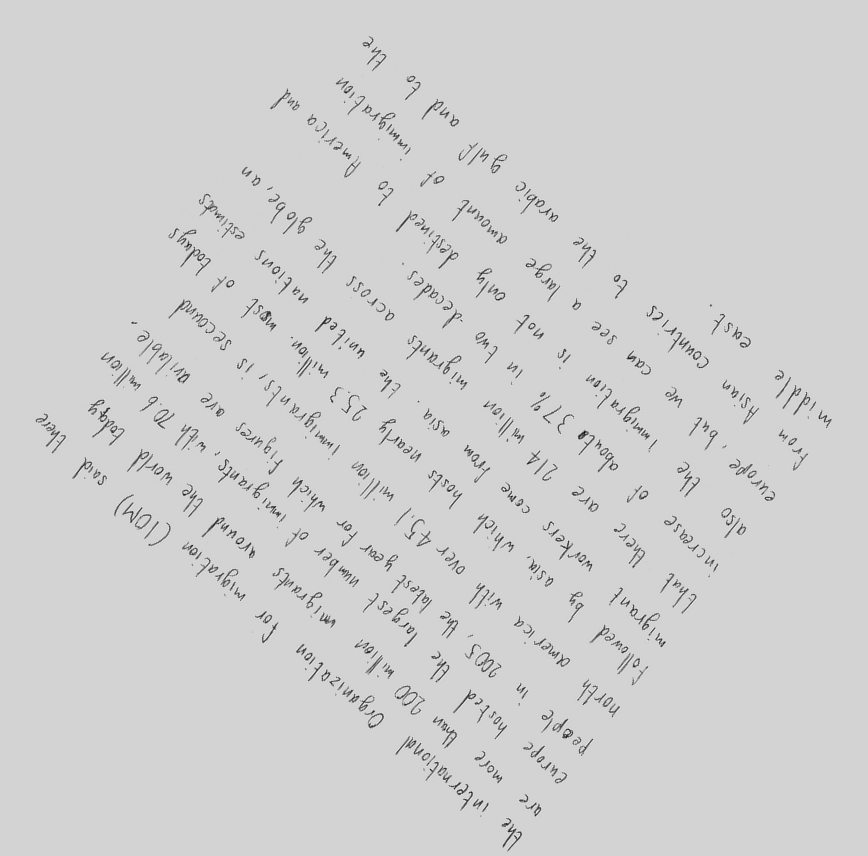 the international Organization for migration (IOM) said there
are more than 200 million migrants around the world today
europe hosted the largest number of immigrants, with 70.6 million
people in 2005, the latest year for which figures are avilable.
north america with over 45.1 million immigrants, is secound
followed by asia, which hosts nearly 25.3 million. most of todays
migrant workers come from asia. the united nations estimates
that there are 214 million migrants across the globe, an
increase of about 37% in two decades.
also the immigration is not only destined to America and
europe, but we can see a large amount of immigration
from Asian countries to the arabic gulf and to the
middle east.